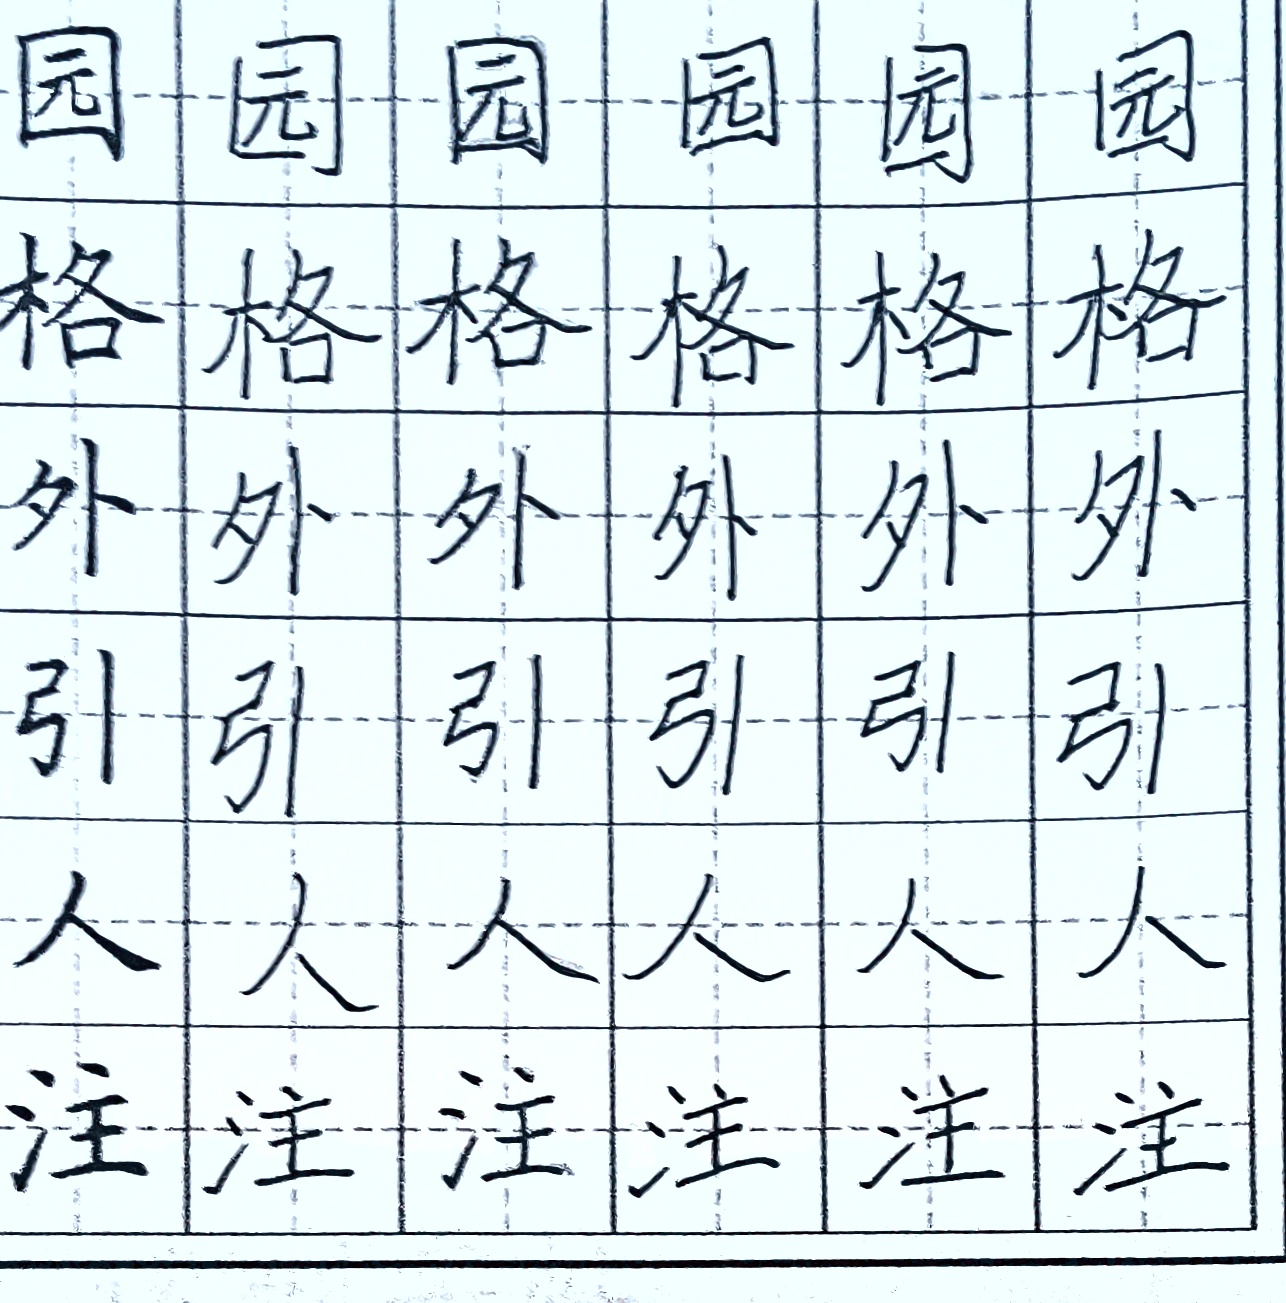 园园园园园园
格格格格格格
外外外外外外
引引引引引引
人人人人人人
注注注注注注